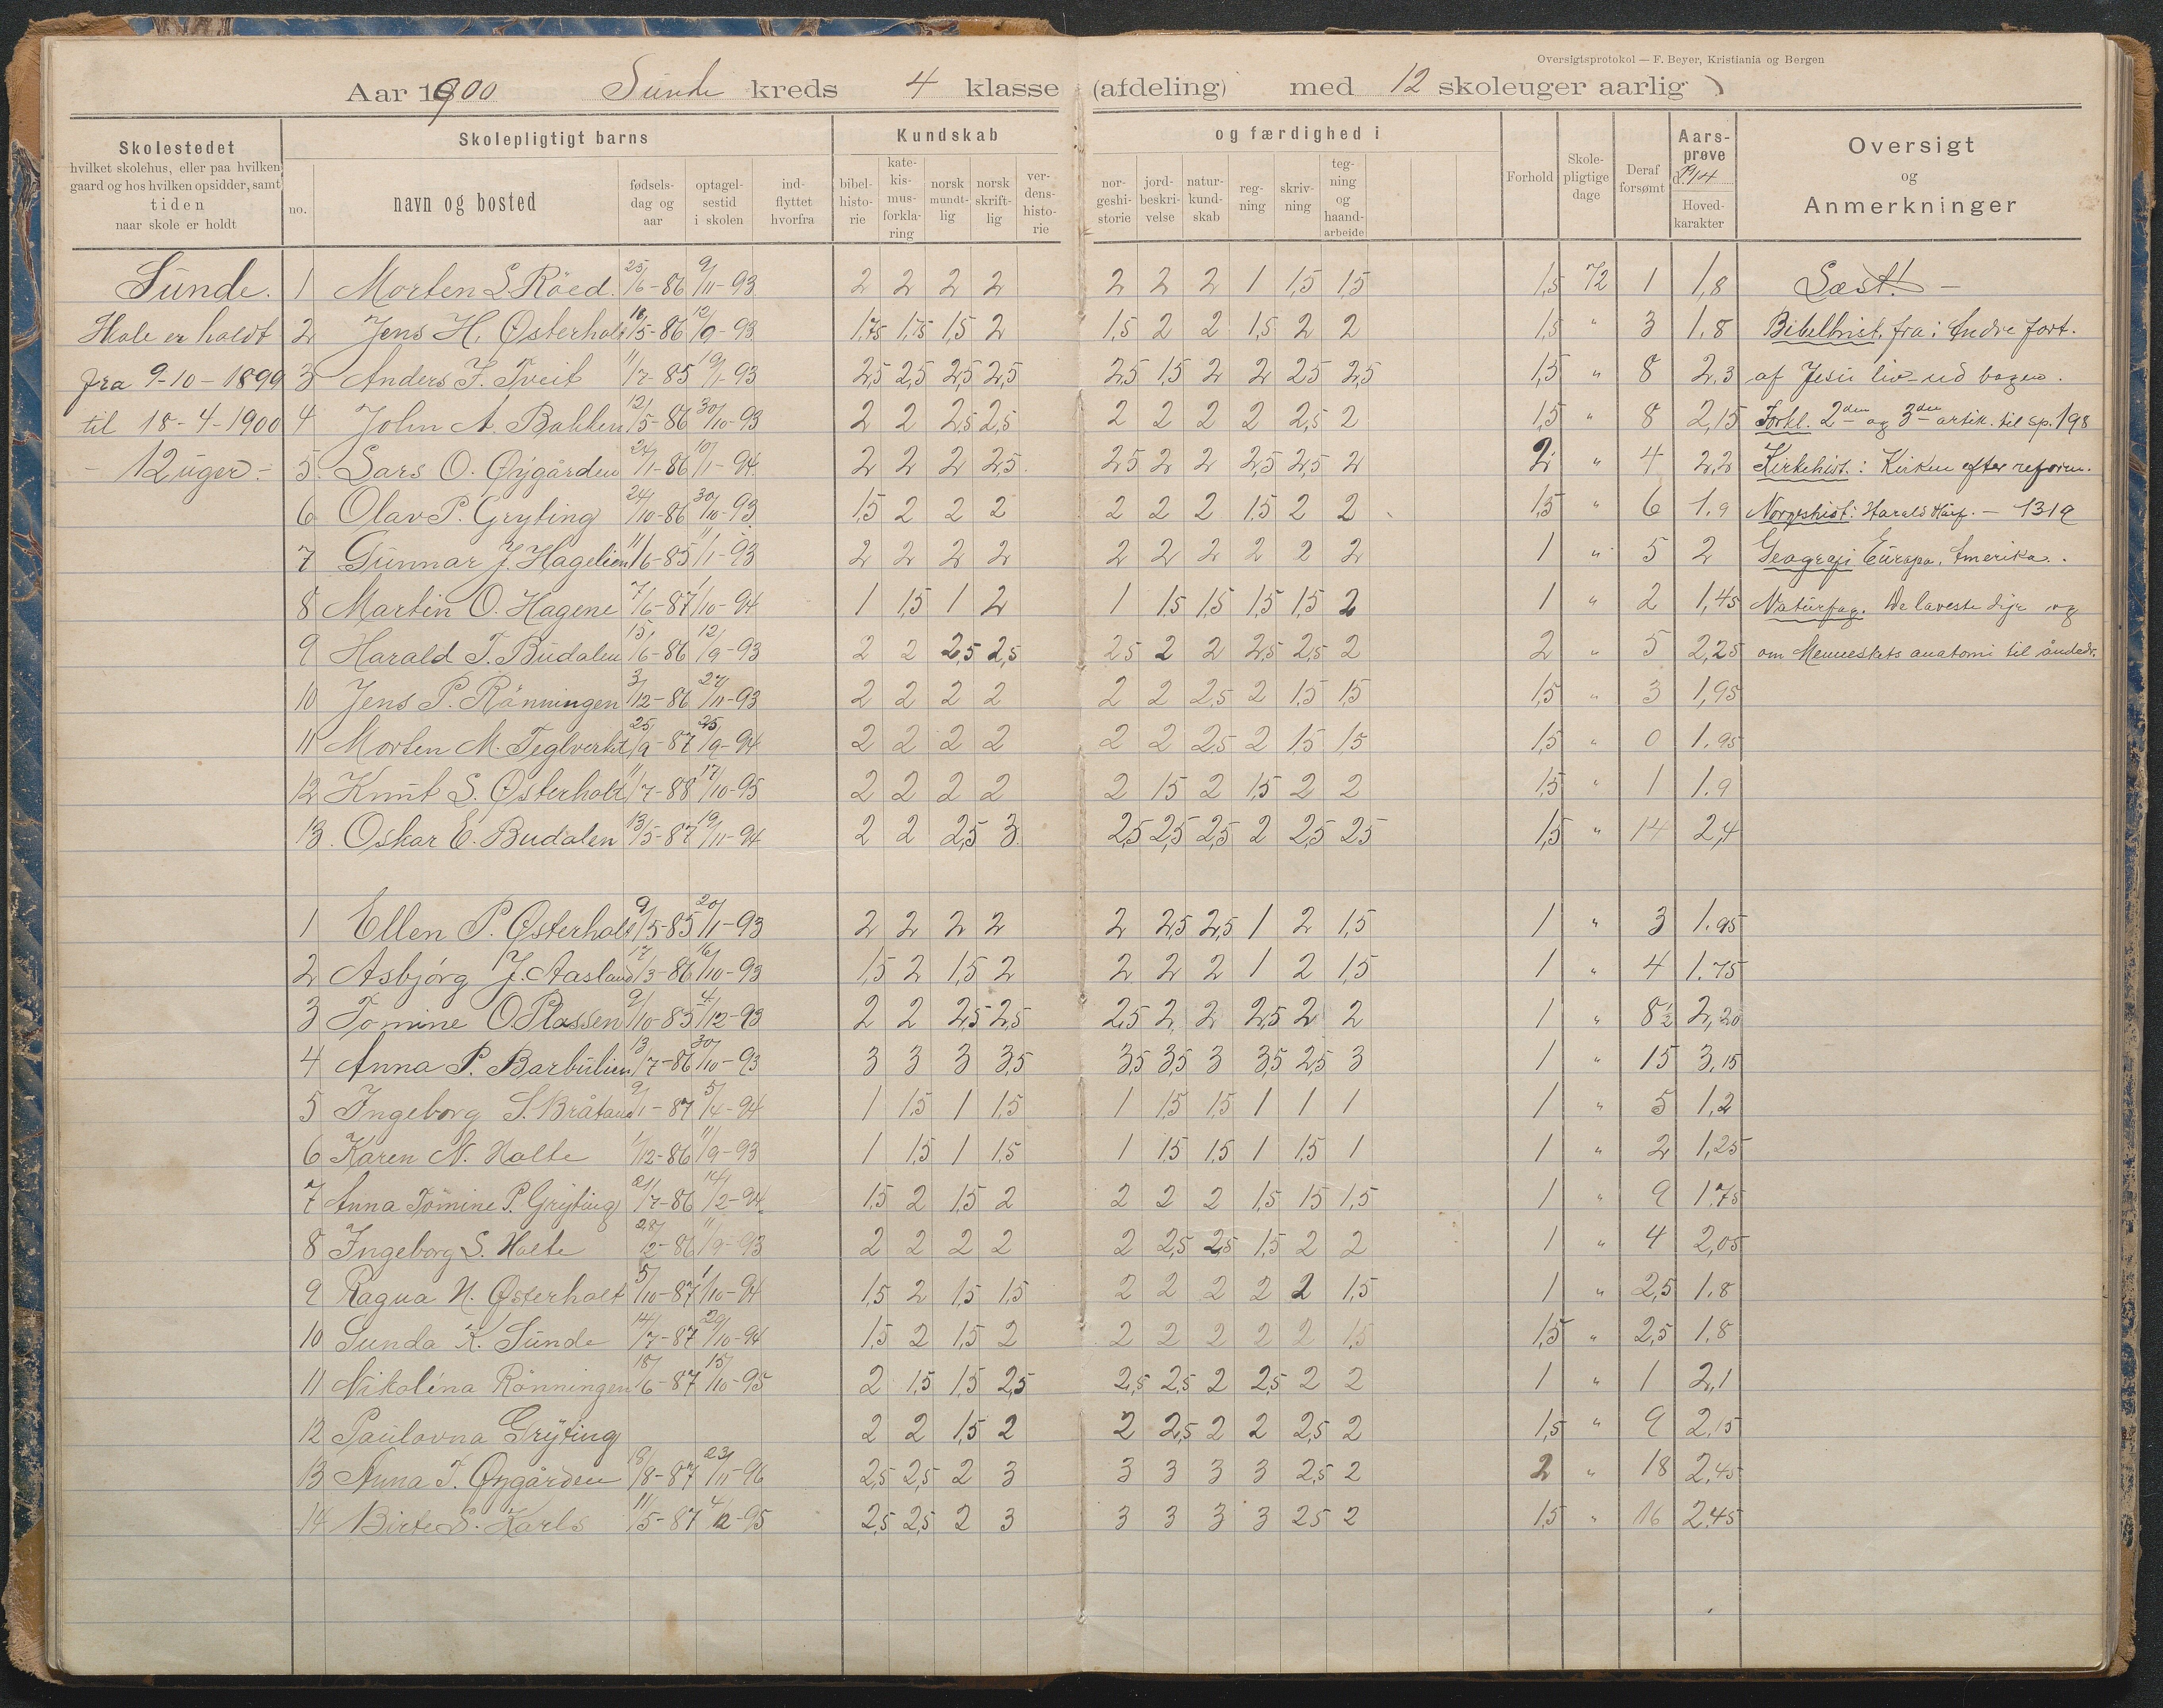 Oversigtsprotokol — F. Beyer, Kristiania og Bergen
Aar 1900 Sunde kreds 4 klasse (afdeling) med 12 skoleuger aarlig
Skolestedet
hvilket skolehus, eller paa hvilken
gaard og hos hvilken opsidder, samt
tiden
naar skole er holdt
Skolepligtigt barns
no. navn og bosted
fødsels-dag og aar
optagel-sestid i skolen
ind-flyttet hvorfra
Kundskab og færdighed i
bibel-histo-rie
kate-kis-mus-forkla-ring
norsk mundt-lig
norsk skrift-lig
ver-dens-histo-rie
nor-geshi-storie
jord-beskri-velse
natur-kund-skab
reg-ning
skriv-ning
teg-ning og haand-arbeide
Forhold
Skole-pligtige dage
Deraf forsømt
Aars-prøve d. 19/4
Hoved-karakter
Oversigt
og
Anmerkninger
Sunde. 1 Morten S. Röed. 25/6-86 9/11-93 2 2 2 2 2 2 2 1 1,5 1,5 1,5 72 1 1,8 Læst! —
Skole er holdt 2 Jens H. Østerholt 16/5-86 12/9-93 1.75 1,75 1,5 2 1,5 2 2 1,5 2 2 1,5 " 3 1.8 Bibelhist. fra: Andre fort.
fra 9-10-1899 3 Anders J. Tveit 11/7-85 19/1-93 2,5 2,5 2,5 2,5 2,5 1,5 2 2 2,5 2,5 1,5 " 8 2.3 af Jesu liv ud bogen.
til 18-4-1900 4 John A. Bakken 12/5-86 30/10-93 2 2 2,5 2,5 2 2 2 2 2,5 2 1,5 " 8 2,15 Forkl. 2den og 3die artik. til sp. 198
- 12 uger - 5. Lars O. Øygården 24/1-86 10/1-94 2 2 2 2,5 2,5 2 2 2,5 2,5 2 2 " 4 2,2 Kirkehist.: Kirken efter reform.
6 Olav P. Gryting 24/10-86 30/10-93 1,5 2 2 2 2 2 2 1,5 2 2 1,5 " 6 1.9 Norgeshist: Harald Hårf. - 1319
7 Gunnar J. Hagelien 11/6-85 11/1-93 2 2 2 2 2 2 2 2 2 2 1 " 5 2 Geografi Europa, Amerika.
8 Martin O. Hagene 7/6-87 1/10-94 1 1,5 1 2 1 1,5 1,5 1,5 1,5 2 1 " 2 1,45 Naturfag. De laveste dyr og
9 Harald T. Budalen 15/6-86 12/9-93 2 2 2,5 2,5 2,5 2 2 2,5 2,5 2 2 " 5 2,25 om Menneskets anatomi til åndedr.
10 Jens P. Rönningen 3/12-86 27/11-93 2 2 2 2 2 2 2,5 2 1,5 1,5 1,5 " 3 1,95
11 Morten M. Teglverket 25/9-87 25/9-94 2 2 2 2 2 2 2,5 2 1,5 1,5 1,5 " 0 1.95
12 Knut S. Østerholt 11/7-88 17/10-95 2 2 2 2 2 1,5 2 1,5 2 2 1,5 " 1 1.9
13. Oskar E. Budalen 13/5-87 19/11-94 2 2 2,5 3 2,5 2,5 2,5 2 2,5 2,5 1,5 " 14 2,4
1 Ellen P. Østerholt 9/5-85 20/1-93 2 2 2 2 2 2,5 2,5 1 2 1,5 1 " 3 1.95
2 Asbjörg J. Aasland 17/3-86 16/10-93 1,5 2 1,5 2 2 2 2 1 2 1,5 1 " 4 1.75
3 Tomine O. Plassen 9/10-85 4/12-93 2 2 2,5 2,5 2,5 2 2 2,5 2 2 1 " 8½ 2,20
4 Anna P. Barbulien 13/7-86 30/10-93 3 3 3 3,5 3,5 3,5 3 3,5 2,5 3 1 " 15 3,15
5 Ingeborg S. Bråtane 9/1-87 5/4-94 1 1,5 1 1,5 1 1,5 1,5 1 1 1 1 " 5 1,2
6 Karen N. Holte 1/12-86 11/9-93 1 1,5 1 1,5 1 1,5 1,5 1 1,5 1 1 " 2 1,25
7 Anna Tomine P. Gryting 21/7-86 14/2-94 1,5 2 1,5 2 2 2 2 1,5 1,5 1,5 1 " 9 1.75
8 Ingeborg S. Holte 28/12-86 11/9-93 2 2 2 2 2 2,5 2,5 1,5 2 2 1 " 4 2,05
9 Ragna H. Østerholt 5/10-87 1/10-94 1,5 2 1,5 1,5 2 2 2 2 2 1,5 1 " 2,5 1.8
10 Sunda K. Sunde 14/7-87 29/10-94 1,5 2 1,5 2 2 2 2 2 2 1,5 1,5 " 2,5 1.8
11 Nikolina Rönningen 18/6-87 15/10-95 2 1,5 1,5 2,5 2,5 2,5 2 2,5 2 2 1 " 1 2,1
12 Paulovna Gryting 2 2 1,5 2 2 2,5 2 2 2,5 2 1,5 " 9 2,15
13 Anna T. Øygården 18/8-87 23/11-96 2,5 2,5 2 3 3 3 3 3 2,5 2 2 " 18 2,45
14 Birte S. Karls 11/5-87 4/12-95 2,5 2,5 2 3 3 3 3 3 2,5 2 1,5 " 16 2.45